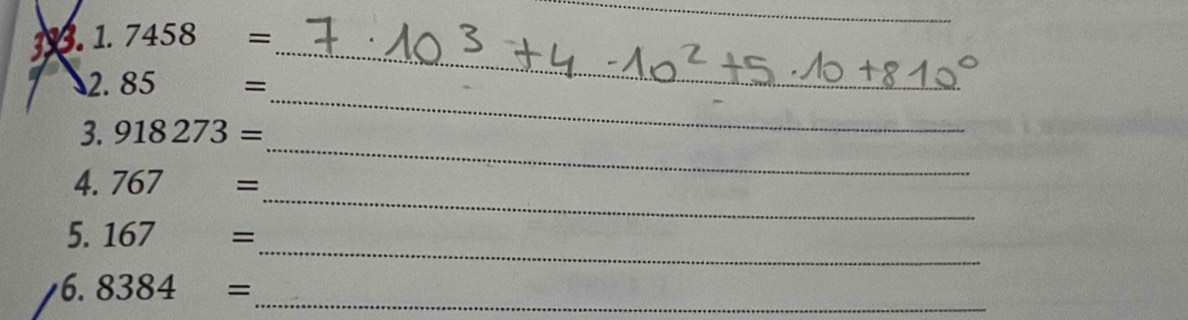 333. 1. 7458 = 7 · 10³ + 4 · 10² + 5 · 10 + 8 10⁰
2. 85 =
3. 918 273 =
4. 767 =
5. 167 =
6. 8384 =